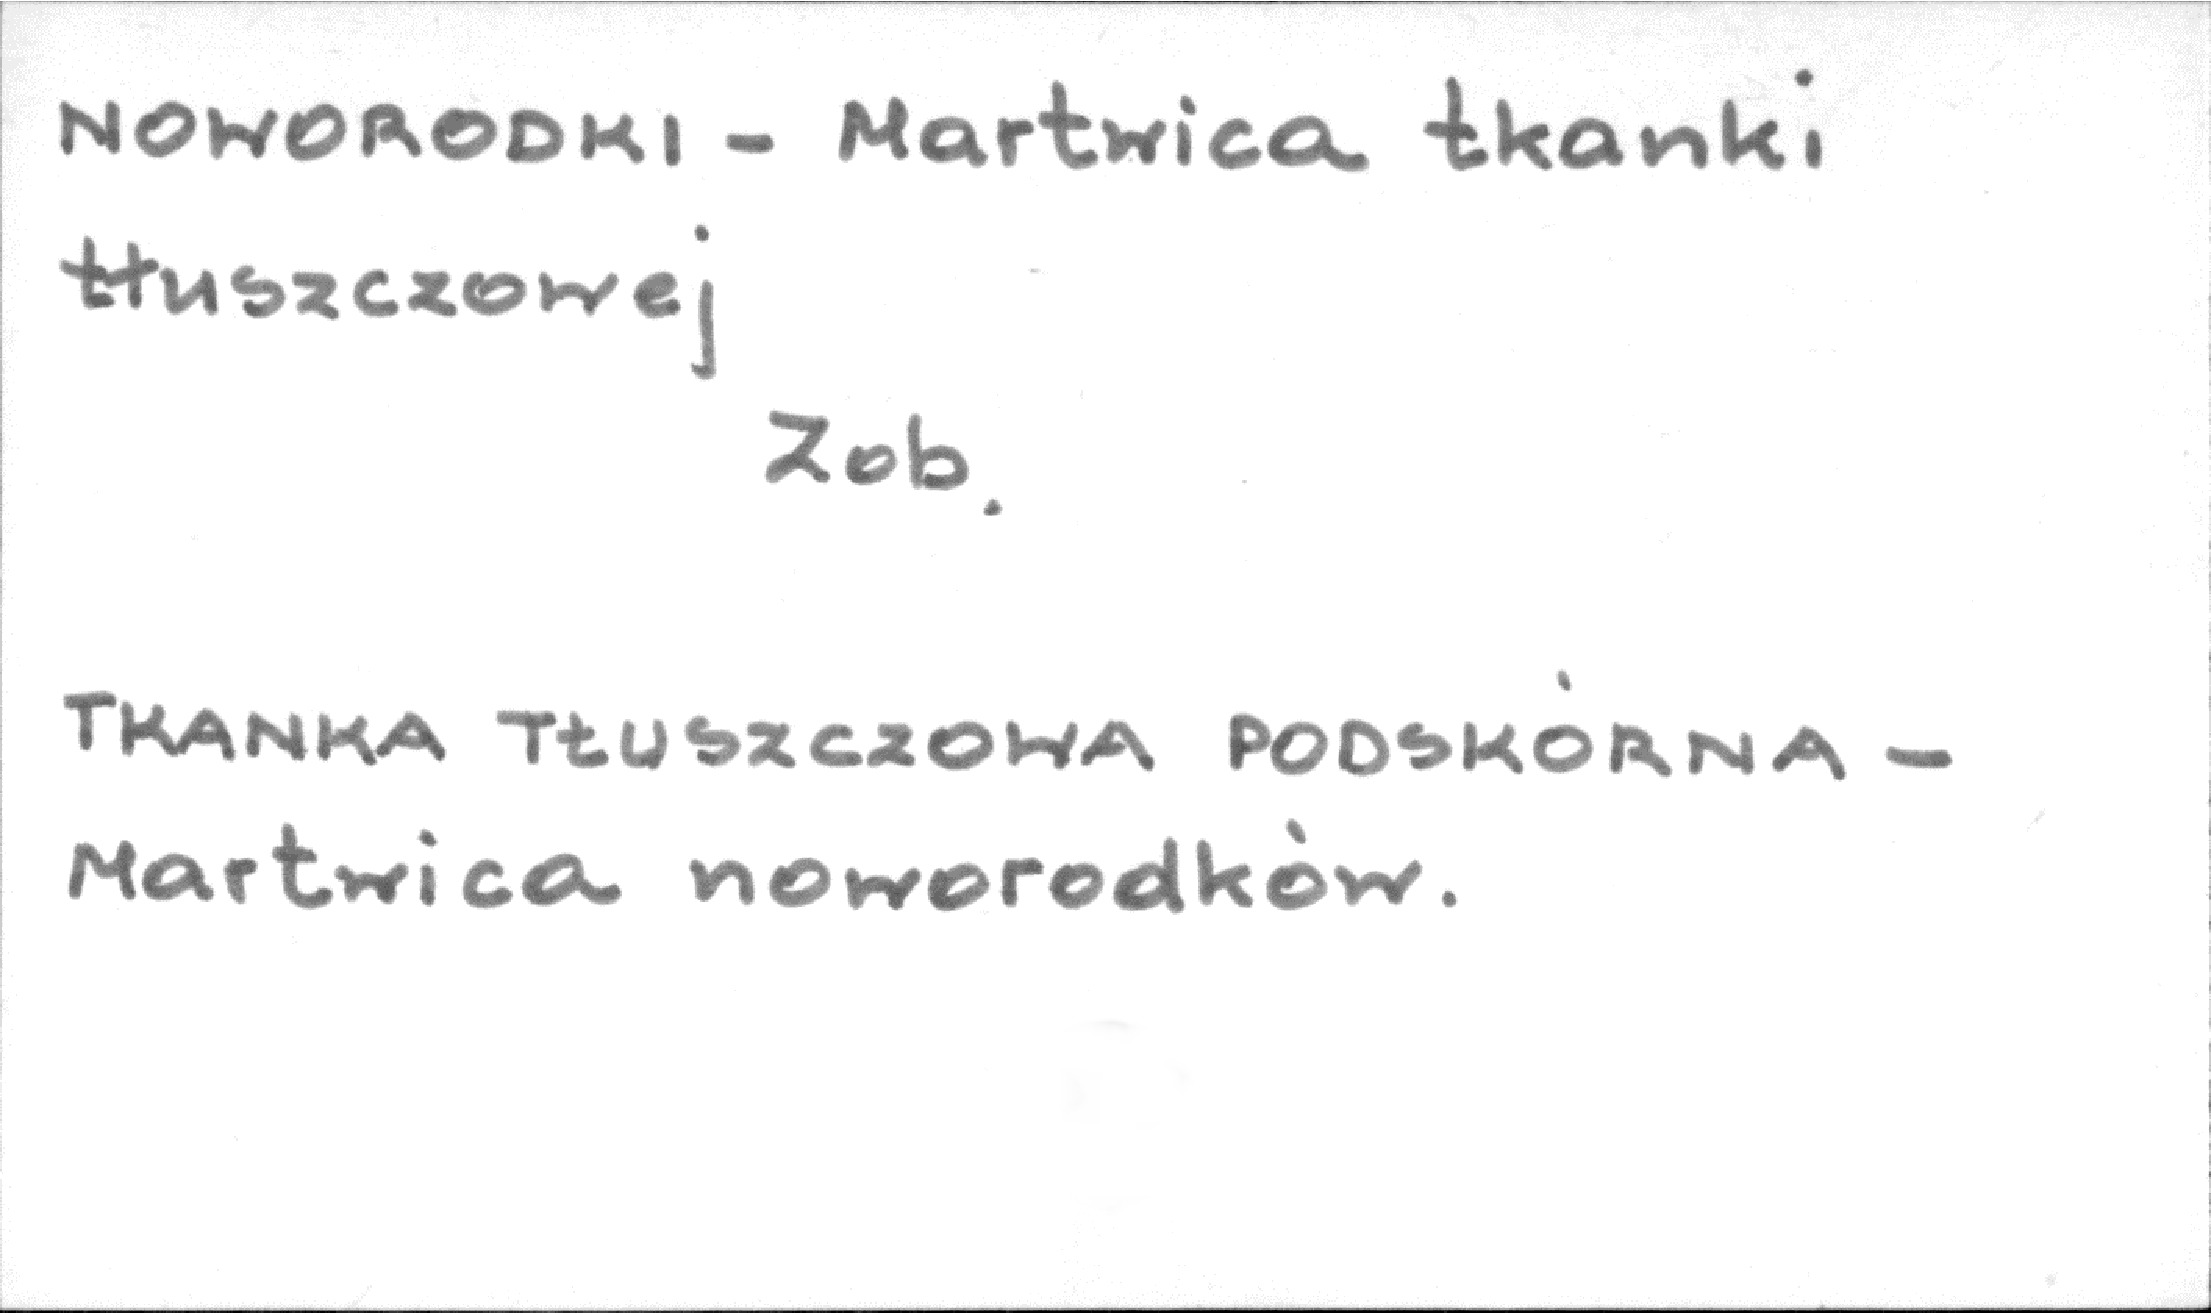 NOWORODKI - Martwica tkanki
tłuszczowej
Zob.
TKANKA TŁUSZCZOWA PODSKÓRNA -
Martwica noworodków.